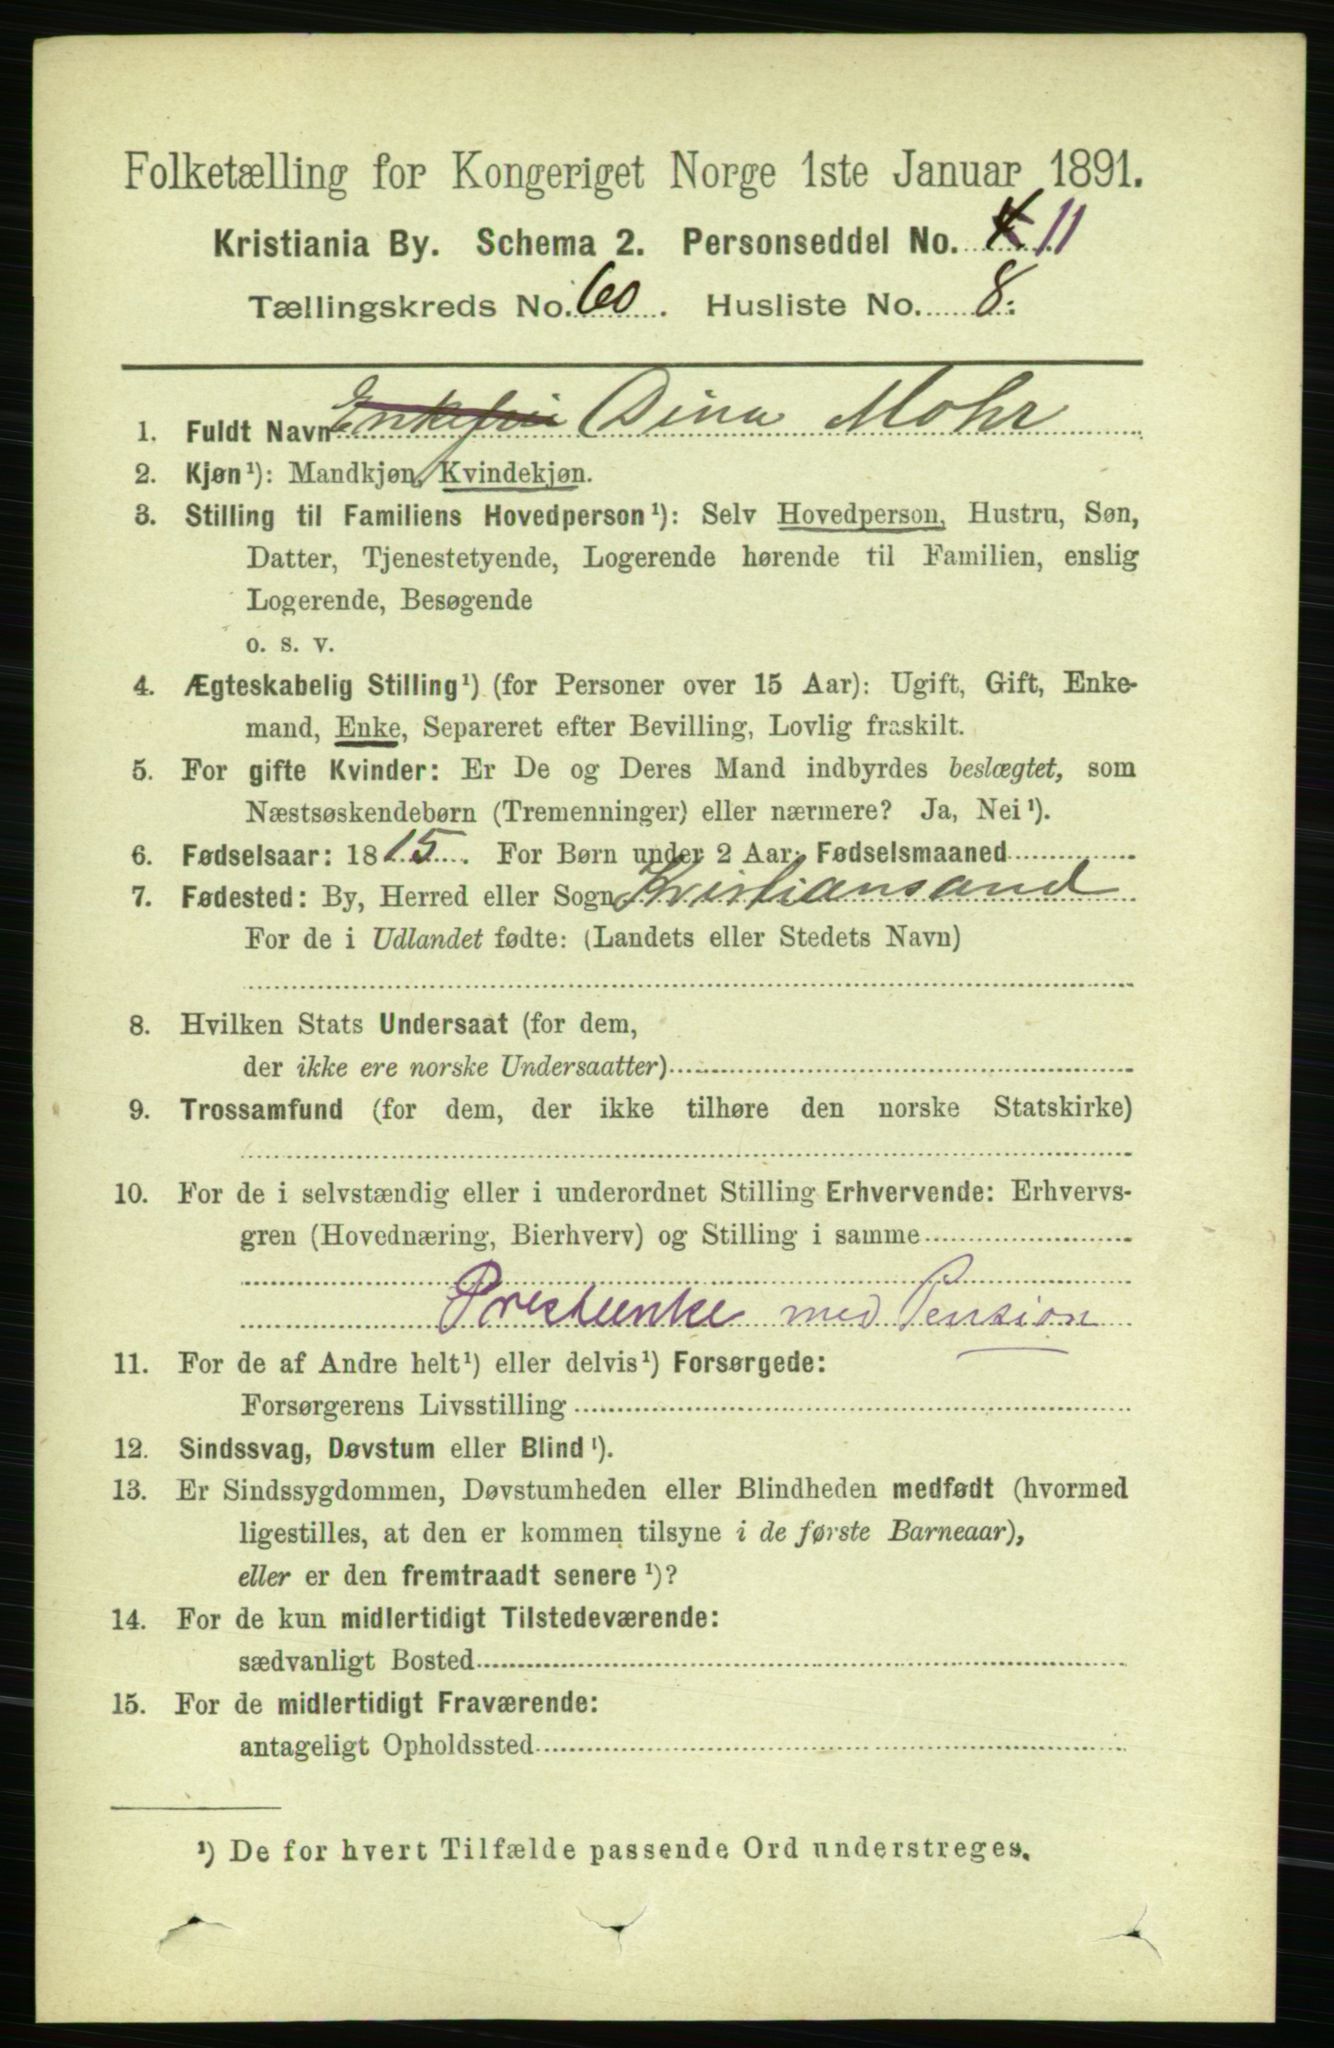 Folketælling for Kongeriget Norge 1ste Januar 1891.
Kristiania By. Schema 2. Personseddel No. 4 11
Tællingskreds No. 60. Husliste No. 8.
1. Fuldt Navn Enkefru Dina Mohr
2. Kjøn¹): Mandkjøn, Kvindekjøn.
3. Stilling til Familiens Hovedperson¹): Selv Hovedperson, Hustru, Søn,
Datter, Tjenestetyende, Logerende hørende til Familien, enslig
Logerende, Besøgende
o. s. v.
4. Ægteskabelig Stilling¹) (for Personer over 15 Aar): Ugift, Gift, Enke-
mand, Enke, Separeret efter Bevilling, Lovlig fraskilt.
5. For gifte Kvinder: Er De og Deres Mand indbyrdes beslægtet, som
Næstsøskendebørn (Tremenninger) eller nærmere? Ja, Nei¹).
6. Fødselsaar: 1815. For Børn under 2 Aar: Fødselsmaaned
7. Fødested: By, Herred eller Sogn Kristiansand
For de i Udlandet fødte: (Landets eller Stedets Navn)
8. Hvilken Stats Undersaat (for dem,
der ikke ere norske Undersaatter)
9. Trossamfund (for dem, der ikke tilhøre den norske Statskirke)
10. For de i selvstændig eller i underordnet Stilling Erhvervende: Erhvervs-
gren (Hovednæring, Bierhverv) og Stilling i samme
Presteenke med Pension
11. For de af Andre helt¹) eller delvis¹) Forsørgede:
Forsørgerens Livsstilling
12. Sindssvag, Døvstum eller Blind¹).
13. Er Sindssygdommen, Døvstumheden eller Blindheden medfødt (hvormed
ligestilles, at den er kommen tilsyne i de første Barneaar),
eller er den fremtraadt senere¹)?
14. For de kun midlertidigt Tilstedeværende:
sædvanligt Bosted
15. For de midlertidigt Fraværende:
antageligt Opholdssted
¹) De for hvert Tilfælde passende Ord understreges.